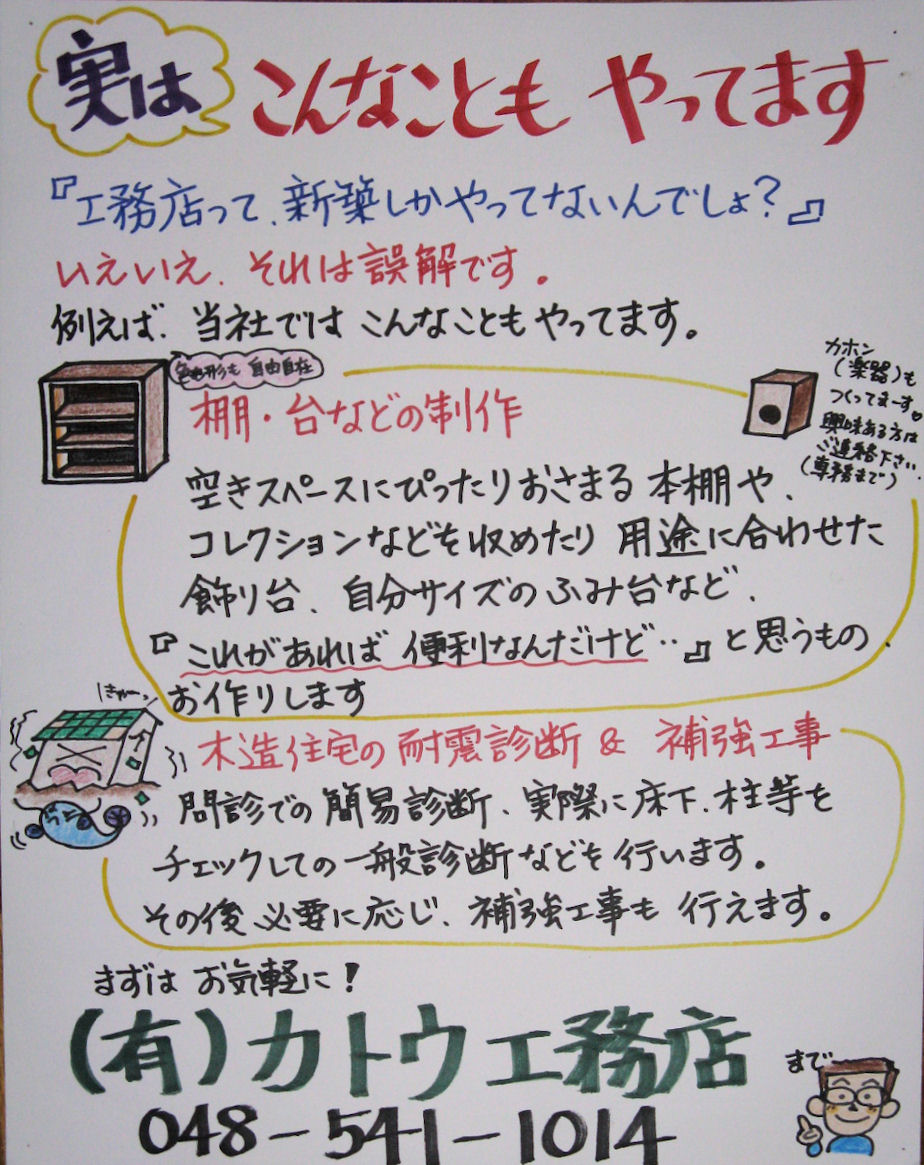 実は こんなことも やってます
『工務店って、新築しかやってないんでしょ?』
いえいえ、それは誤解です。
例えば、当社では こんなことも やってます。
色も形も 自由自在
棚・台などの制作
カホン
(楽器)も
つくってまーす。
興味ある方は
ご連絡下さい
(専務まで)
空きスペースにぴったりおさまる 本棚や、
コレクションなどを収めたり 用途に合わせた
飾り台、自分サイズのふみ台など、
『これがあれば 便利なんだけど‥』と思うもの、
お作りします
木造住宅の耐震診断 & 補強工事
問診での簡易診断、実際に床下、柱等を
チェックしての一般診断などを行います。
その後、必要に応じ、補強工事も 行えます。
まずは お気軽に!
(有)カトウ工務店
まで
048-541-1014